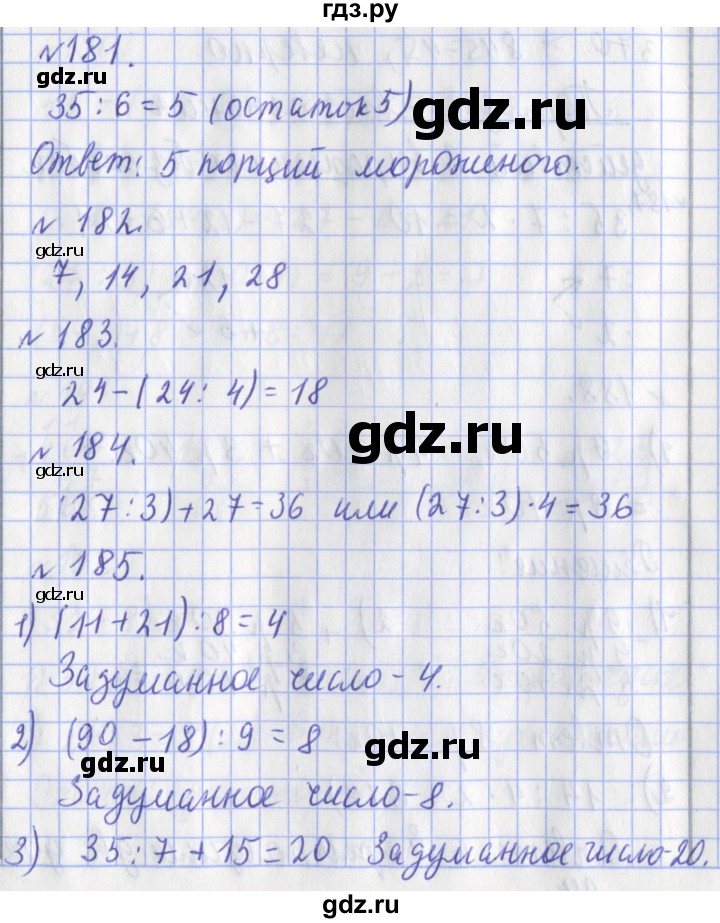 гдз.ру
№181.
gdz.ru
35 : 6 = 5 (остаток 5)
gdz.ru
Ответ: 5 порций мороженого.
№ 182.
gdz.ru
7, 14, 21, 28
№ 183.
gdz.ru
24-(24 : 4) = 18
gdz.ru
№ 184.
gdz.ru
(27 : 3)+27=36 или (27:3)·4=36
№ 185.
gdz.ru
1) (11+21) : 8 = 4
gdz.ru
gdz.ru
Задуманное число - 4.
2) (90 - 18) : 9 = 8
gdz.ru
gdz.ru
Задуманное число-8.
3) 35:7+15=20 Задуманное число-20.